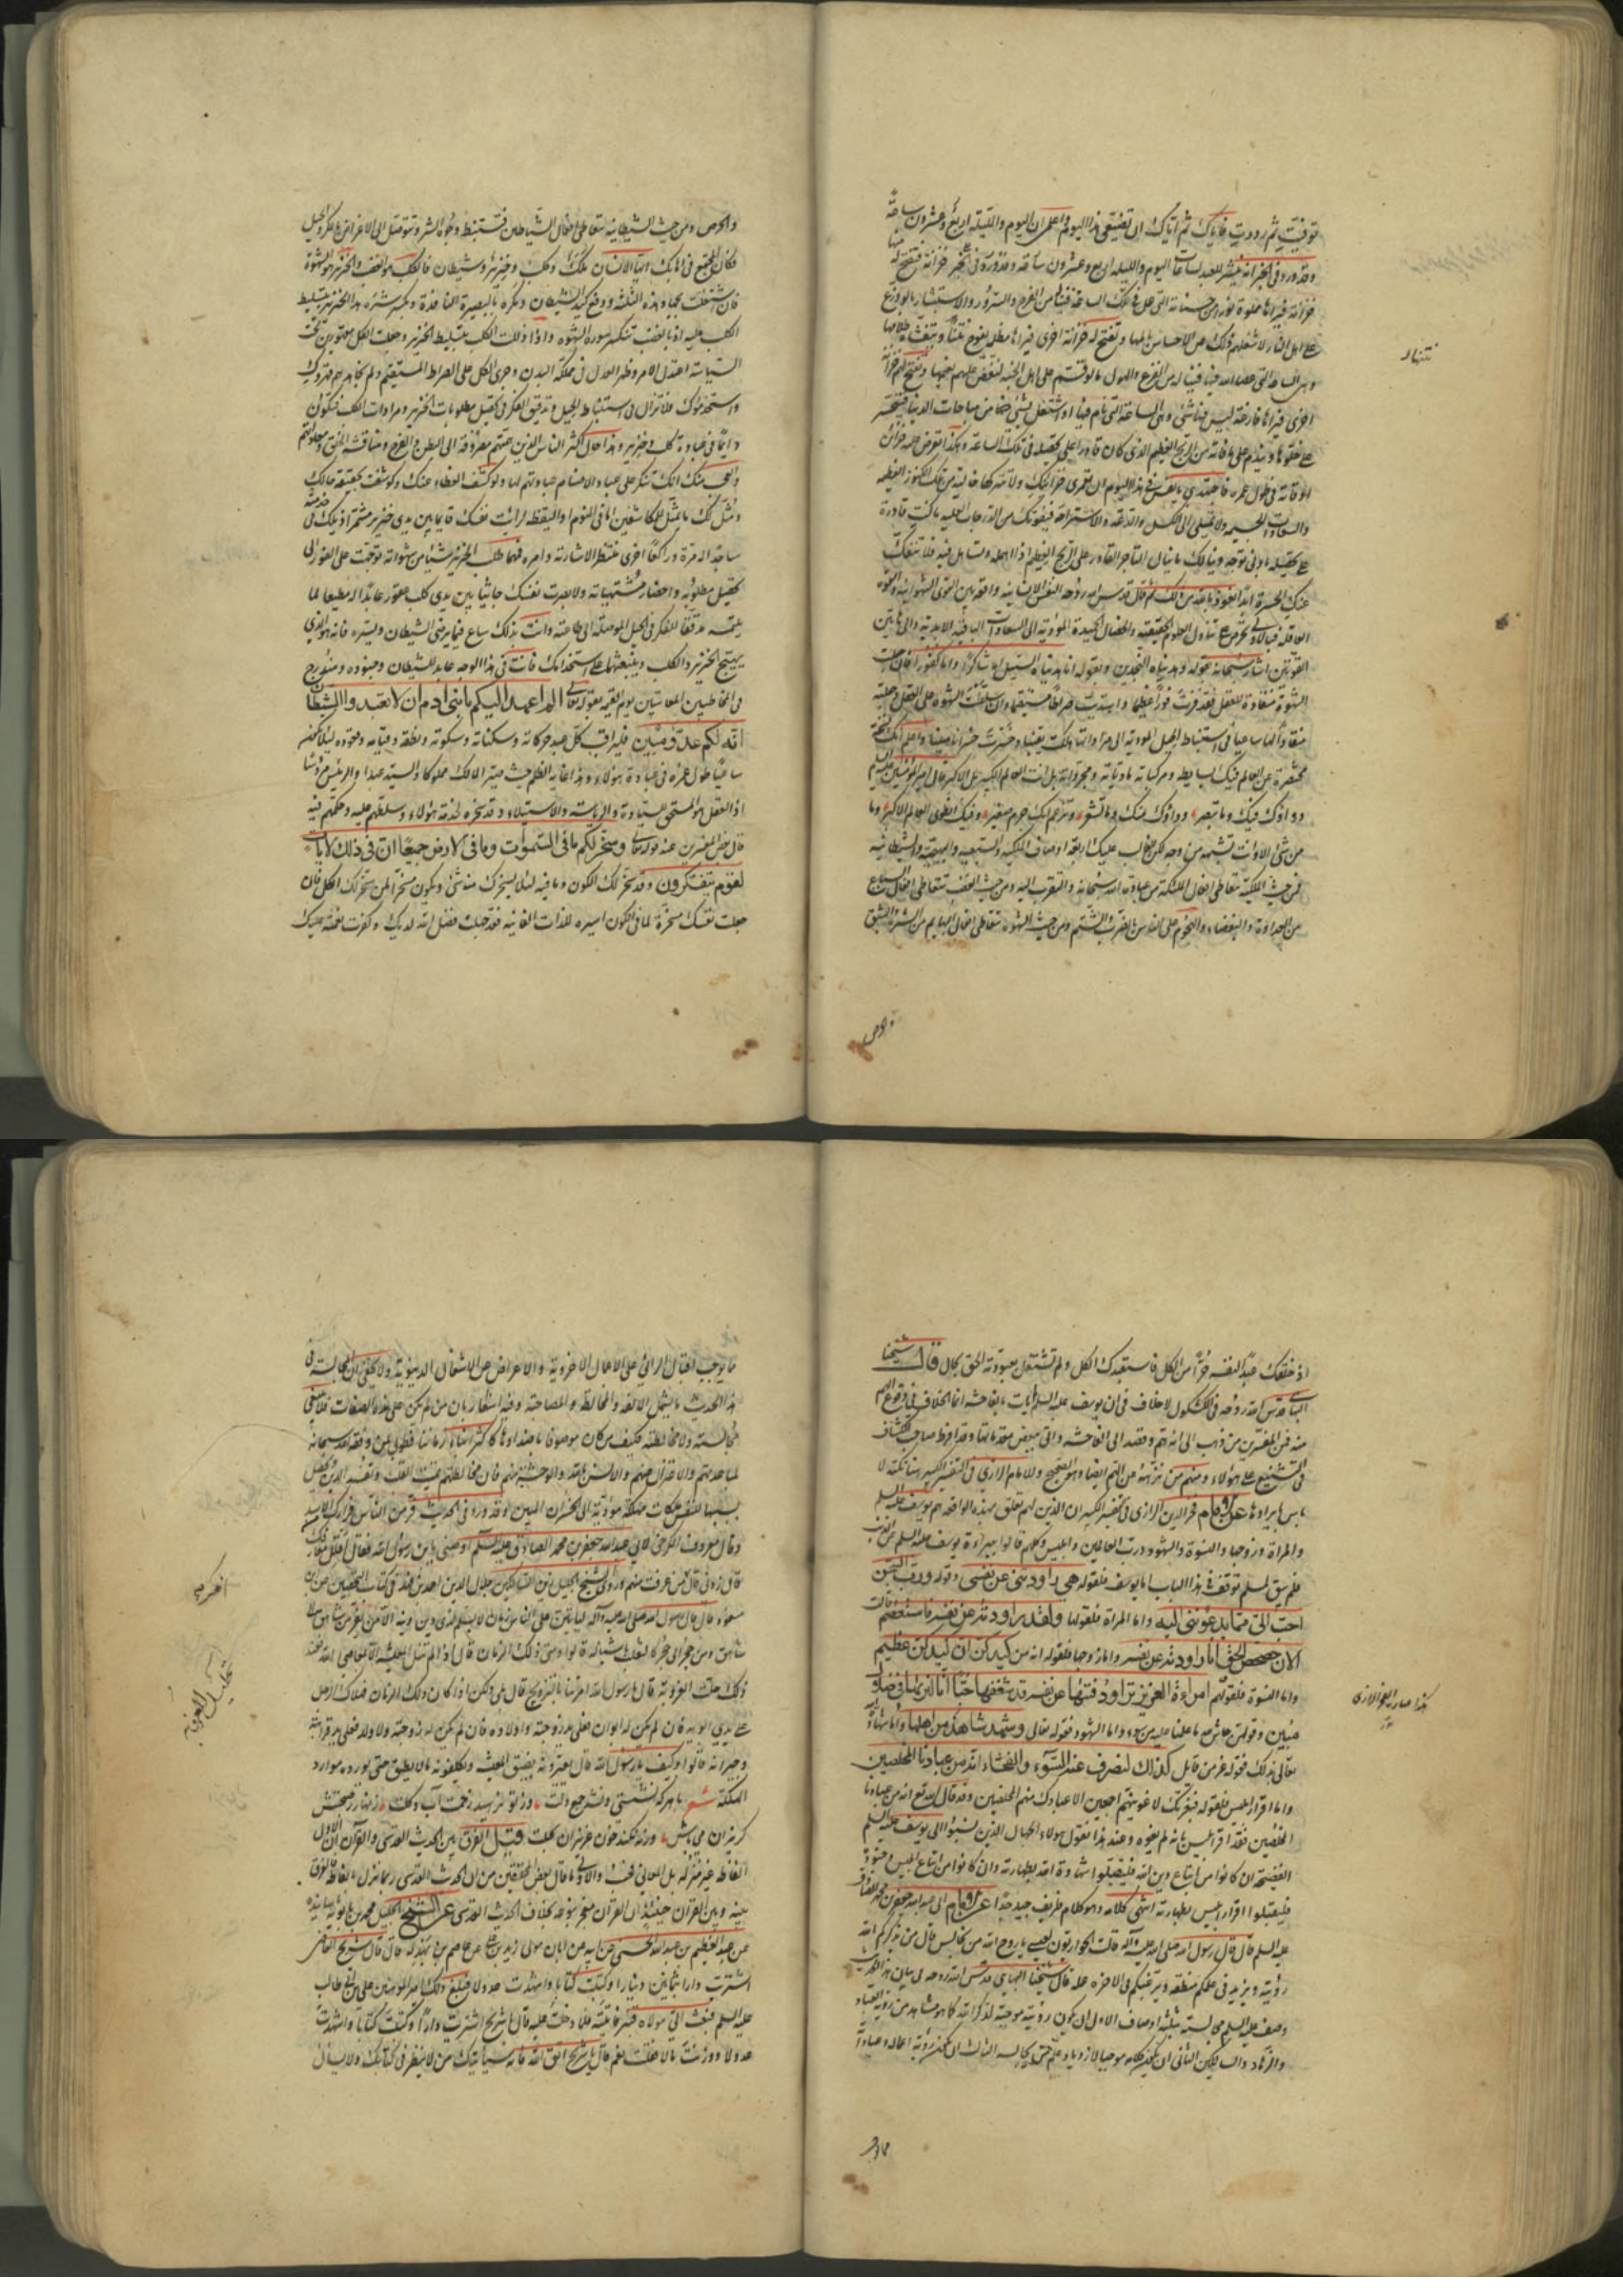 توفيت ثم رددت فاياك ثم اياك ان تضيعي هذا اليوم واعلمي ان اليوم والليلة اربع وعشرون ساعة
وقد ورد في الخبر انه ينشر للعبد بساعات اليوم والليلة اربع وعشرون
خزانة فيراها مملوة نورا من حسناته التي عمل في تلك الساعة فينالها من الفرح والسرور والاستبشار ما لو وزع
على اهل النار لاشغلهم ذلك عن الاحساس بالمها وتفتح له خزانة اخرى فيراها مظلمة يفوح نتنها ويتغشاه ظلامها
وهي الساعة التي عصى الله فيها فيناله من الفزع والهول ما لو قسم على اهل الجنة لنغص عليهم نعيمها
اخرى فيراها فارغة ليس فيها شيء وهي الساعة التي نام فيها او اشتغل بشيء من مباحات الدنيا فيتحسر
على خلوها ويندم على ما فاته من الربح العظيم الذي كان قادرا على تحصيله في تلك الساعة وهكذا تعرض عليه خزائن
اوقاته في طول عمره فاجتهدي يا نفس في هذا اليوم ان تعمري خزائنك ولا تتركها خالية من تلك الكنوز العظيمة
والسعادات الجسيمة ولا تميلي الى الكسل والدعة والاستراحة فيفوتك من الدرجات العلية ما كنت قادرة
على تحصيله بادنى توجه وينالك ما ينال التاجر القادر على الربح العظيم اذا اهمله وتساهل فيه فلا تنفك
عنك الحسرة ابدا نعوذ بالله من ذلك ثم قال قدس الله روحه النفس الانسانية واقعة بين القوة الشهوانية والقوة
العاقلة فبالاولى تحرص على تناول
القوتين اشار سبحانه بقوله وهديناه النجدين وبقوله انا هديناه السبيل اما شاكرا واما كفورا فان جعلت
الشهوة منقادة للعقل فقد فزت فوزا عظيما واهتديت صراطا مستقيما وان سلطت الشهوة على العقل وجعلته
منقادا لها ساعيا في استنباط الحيل المودية الى مراداتها هلكت يقينا وخسرت خسرانا مبينا واعلم انك نسخة
مختصرة من العالم فيك بسايطه ومركباته مادياته ومجرداته بل انت العالم الكبير بل الاكبر كما قال امير المؤمنين عليه السلام
دواؤك فيك وما تبصر وداؤك منك وما تشعر وتزعم انك جرم صغير وفيك انطوى العالم الاكبر وما
من حيث الملكية تتعاطى افعال الملئكة من عبادة الله سبحانه والتقرب اليه ومن حيث الغضب تتعاطى افعال السباع
من العداوة والبغضاء والهجوم على الناس بالضرب والشتم ومن حيث الشهوة تتعاطى افعال البهايم من الشره والشبق
والحرص
والحرص ومن حيث الشيطانية تتعاطى افعال الشياطين فتستنبط وجوه الشر وتتوصل الى الاغراض بالمكر والحيل
فكان المجتمع في اهابك ايها الانسان ملك وكلب وخنزير وشيطان فالكلب هو الغضب والخنزير هو الشهوة
فان اشتغلت بجهاد هذه الثلثة ودفع كيد الشيطان ومكره بالبصيرة النافذة وكسر شره هذا الخنزير بتسليط
الكلب عليه اذ بالغضب تنكسر سورة الشهوة واذا ذللت الكلب بتسليط الخنزير وجعلت الكل مقهورين تحت
السياسة اعتدل الامر وظهر العدل في مملكة البدن وجرى الكل على الصراط المستقيم ولم تجاهدهم قهروك
واستخدموك فلا تزال في استنباط الحيل وتدقيق الفكر في تحصيل مطلوبات الخنزير ومرادات الكلب فتكون
دايما في عبادة كلب وخنزير وهذا حال اكثر الناس
والعجب منك انك تنكر على عباد الاصنام عبادتهم لها ولو كشف الغطاء عنك وكوشفت بحقيقة حالك
ومثل لك ما يمثل للمكاشفين اما في النوم او اليقظة لرايت نفسك قايما بين يدي خنزير مشمرا ذيلك في خدمته
ساجدا له مرة وراكعا اخرى منتظرا لاشارته وامره فمهما طلب الخنزير شيئا من شهواته توجهت على الفور الى
تحصيل مطلوبه واحضار مشتهياته ولابصرت نفسك جاثيا بين يدي كلب عقور عابدا له مطيعا لما
يلتمسه مدققا للفكر في الحيل الموصلة الى طاعته وانت بذلك ساع فيما يرضي الشيطان ويسره فانه هو الذي
يهيج الخنزير والكلب ويبعثهما على استخدامك فانت في هذا الوجه عابد للشيطان وجنوده ومندرج
في المخاطبين المعاتبين يوم القيمة بقوله تعالى الم اعهد اليكم يا بني ادم ان لا تعبدوا الشيطان
انه لكم عدو مبين فليراقب كل عبد حركاته وسكناته وسكوته ونطقه وقيامه وقعوده لئلا يكون
ساعيا طول عمره في عبادة هؤلاء وهذا غاية الظلم حيث صير المالك مملوكا والسيد عبدا والرئيس مرؤسا
اذ العقل هو المستحق للسيادة والرياسة والاستيلاء وقد سخره لخدمة هؤلاء وسلطهم عليه وحكمهم فيه
قال بعض المفسرين عند قوله تعالى وسخر لكم ما في السموات وما في الارض جميعا ان في ذلك لايات
لقوم يتفكرون وقد سخر لك الكون وما فيه لئلا يسخرك منه شيء وتكون مسخرا لمن سخر لك الكل فان
جعلت نفسك مسخرة لما في الكون اسيرة للذات الفانية فقد جهلت فضل الله لديك وكفرت نعمته عليك
اذ خلقك عبدا لنفسه حرا من الكل فاستعبدك الكل ولم تشتغل بعبودية الحق بحال قال شيخنا
البهائي قدس الله روحه في الكشكول لا خلاف في ان يوسف عليه السلام لم يات بالفاحشة انما الخلاف في وقوع الهم
منه فمن المفسرين من ذهب الى انه هم وقصد الى الفاحشة واتى ببعض مقدماتها وقد افرط صاحب الكشاف
في التشنيع على هؤلاء ومنهم من نزهه عن الهم ايضا وهو الصحيح وللامام الرازي في التفسير الكبير هنا نكتة لا
باس بايرادها
والمراة وزوجها والنسوة والشهود ورب العالمين وابليس وكلهم قالوا ببراءة يوسف عليه السلام عن الذنب
فلم يبق لمسلم توقف في هذا الباب اما يوسف فلقوله هي راودتني عن نفسي وقوله رب السجن
احب الي مما يدعونني اليه واما المراة فلقولها ولقد راودته عن نفسه فاستعصم وقالت
الان حصحص الحق انا راودته عن نفسه واما زوجها فلقوله انه من كيدكن ان كيدكن عظيم
واما النسوة فلقولهم امراة العزيز تراود فتيها عن نفسه قد شغفها حبا انا لنريها في ضلال
مبين وقولهن حاش لله ما علمنا عليه من سوء واما الشهود فقوله تعالى وشهد شاهد من اهلها واما شهادة الله
تعالى بذلك فقوله عز من قايل كذلك لنصرف عنه السوء والفحشاء انه من عبادنا المخلصين
واما اقرار ابليس فلقوله فبعزتك لاغوينهم اجمعين الا عبادك منهم المخلصين وقد قال الله تع انه من عبادنا
المخلصين فقد اقر ابليس بانه لم يغوه وعند هذا نقول هؤلاء الجهال الذين نسبوا الى يوسف عليه السلام
الفضيحة ان كانوا من اتباع دين الله فليقبلوا شهادة الله بطهارته وان كانوا من اتباع ابليس وجنوده
فليقبلوا اقرار ابليس بطهارته انتهى كلامه وهو كلام ظريف جيد جدا
عليه السلم قال قال رسول الله صلى الله عليه وآله قالت الحواريون لعيسى يا روح الله من نجالس قال من يذكركم الله
رؤيته ويزيد في علمكم منطقه ويرغبكم في الاخرة عمله قال شيخنا البهائي قدس الله روحه
وصف عليه السلم من يجالسه بثلثة اوصاف الاول ان يكون رؤيته موجبة لذكر الله كما هو مشاهد من رؤية العباد
والزهاد
مما يوجب
هذا عبارة الفخر الرازي
ما يوجب اقبال الرائي على الاعمال الاخروية والاعراض عن الاشغال الدنيوية ولا يخفى ان المجالسة في
هذا الحديث ما يشمل الالفة والمخالطة والمصاحبة وفيه اشعار بان من لم يكن على هذه الصفات فلا ينبغي
مجالسته ولا مخالطته فكيف من كان موصوفا باضدادها كاكثر ابناء زماننا فطوبى لمن وفقه الله سبحانه
لمباعدتهم والاعتزال عنهم والانس بالله والوحشة منهم فان مخالطتهم تميت القلب وتفسد الدين ويحصل
بسببها للنفس ملكات مهلكة مؤدية الى الخسران المبين وقد ورد في الحديث فر من الناس فرارك من الاسد
وقال معروف الكرخي لابي عبد الله جعفر بن محمد الصادق عليه السلم اوصني يا بن رسول الله فقال اقلل معارفك
قال زدني قال انكر من عرفت منهم
مسعود قال قال رسول الله صلى الله عليه وآله لياتين على الناس زمان لا يسلم لذي دين دينه الا من يفر من شاهق الى
شاهق ومن حجر الى حجر كالثعلب باشباله قالوا ومتى ذلك الزمان قال اذا لم تنل المعيشة الا بمعاصي الله فعند
ذلك حلت العزوبة قالوا يا رسول الله امرتنا بالتزويج قال بلى ولكن اذا كان ذلك الزمان فهلاك الرجل
على يدي ابويه فان لم يكن له ابوان فعلى يدي زوجته واولاده فان لم يكن له زوجة ولا ولد فعلى يدي قرابته
وجيرانه قالوا وكيف يا رسول الله قال يعيرونه بضيق المعيشة ويكلفونه ما لا يطيق حتى يوردوه موارد
الهلكة شعر با هر كه نشستي ونشد جمع دلت وز تو نرميد زحمت آب وگلت زنهار ز صحبتش
گريزان مي باش ورنه نكند جان عزيزان بحلت قيل الفرق بين الحديث القدسي والقرآن ان الاول
الفاظه غير منزلة بل المعاني فقط
بينه وبين القران حينئذ ان القران معجز بنوعه بخلاف الحديث القدسي
عن عبد العظيم بن عبد الله الحسني عن ابيه عن ابان مولى زيد بن علي عن عاصم بن بهدلة قال قال شريح القاضي
اشتريت دارا بثمانين دينارا وكتبت كتابا واشهدت عدولا فبلغ ذلك امير المومنين علي بن ابي طالب
عليه السلم فبعث الي مولاه قنبر فاتيته فلما دخلت عليه قال يا شريح اشتريت دارا وكتبت كتابا واشهدت
عدولا ووزنت مالا قلت نعم قال يا شريح اتق الله فانه سياتيك من لا ينظر في كتابك ولا يسال
تحليل العزوبة